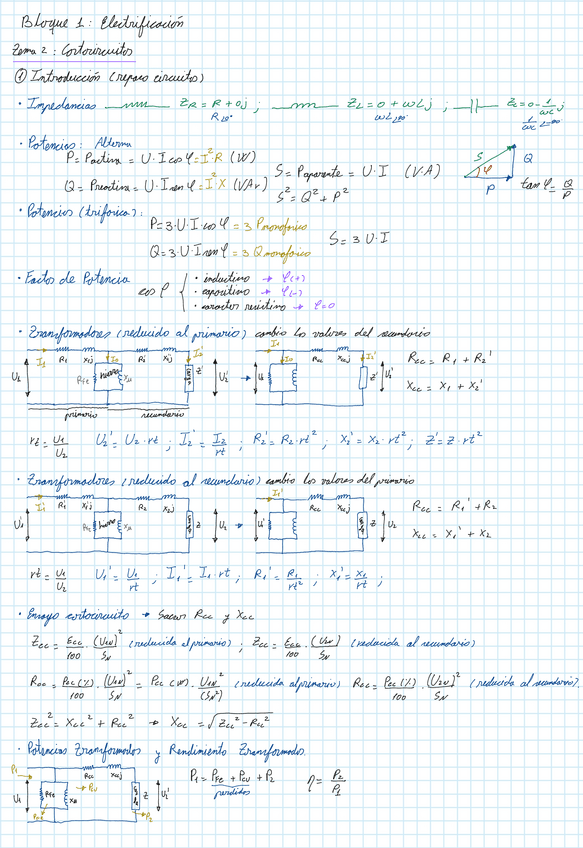 Bloque 1: Electrificación
Tema 2: Cortocircuitos
① Introducción (repaso circuitos)
· Impedancias Z_R = R + 0j ; Z_L = 0 + ωLj ; Z_C = 0 - 1/ωC j
R∠0° ωL∠90° 1/ωC ∠-90°
· Potencias: Alterna
P = Pactiva = U·I cos φ = I²·R (W)
Q = Preactiva = U·I sen φ = I²·X (VAr)
S = Paparente = U·I (V·A)
S² = Q² + P²
S Q φ P tan φ = Q/P
· Potencias (trifásica):
P = 3·U·I·cos φ = 3 Pmonofásica
Q = 3·U·I sen φ = 3 Qmonofásica
S = 3 U·I
· Factor de Potencia
cos φ { · inductivo → φ(+)
· capacitivo → φ(-)
· caracter resistivo → φ=0
· Transformadores (reducido al primario) cambio los valores del secundario
I1 R1 X1j I0 R2' X2j' I2' I1 Rcc Xccj I2'
U1 RFe hierro Xμ Z' U2' → I0 Z' U2'
primario secundario
Rcc = R1 + R2'
Xcc = X1 + X2'
rt = U1/U2 U2' = U2·rt ; I2' = I2/rt ; R2' = R2·rt² ; X2' = X2·rt² ; Z' = Z·rt²
· Transformadores (reducido al secundario) cambio los valores del primario
I1' R1' X1j' R2 X2j I1' Rcc Xccj
RFe hierro Xμ Z → U' Z U2
Rcc = R1' + R2
Xcc = X1' + X2
rt = U1/U2 U1' = U1/rt ; I1' = I1·rt ; R1' = R1/rt² ; X1' = X1/rt² ;
· Ensayo cortocircuito → Sacar Rcc y Xcc
Zcc = Ecc/100 · (U1N)²/SN (reducida al primario) ; Zcc = Ecc/100 · (U2N)²/SN (reducida al secundario)
Rcc = Pcc(%)/100 · (U1N)²/SN = Pcc(W) · U1N²/(SN²) (reducida al primario) Rcc = Pcc(%)/100 · (U2N)²/SN (reducida al secundario).
Zcc² = Xcc² + Rcc² → Xcc = √(Zcc² - Rcc²)
· Potencias Transformados y Rendimiento Transformados.
P1 Rcc Xccj
U1 RFe Xμ → PCu Z U2'
PFe P2
P1 = PFe + PCu + P2
perdidas
η = P2/P1